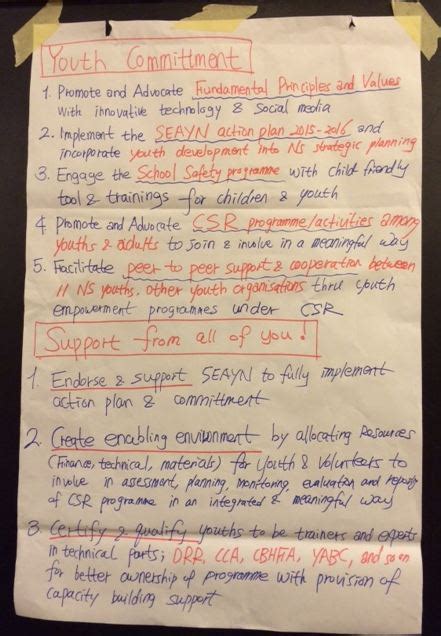 Youth Committment
1. Promote and Advocate Fundamental Principles and Values
with innovative technology & social media
2. Implement the SEAYN action plan 2015-2016 and
incorporate youth development into NS strategic planning
3. Engage the School Safety programme with child friendly
tool & trainings for children & youth
4 Promote and Advocate CSR programme/activities among
youths & adults to join & involve in a meaningful way
5. Facilitate peer to peer support & cooperation between
11 NS youths, other youth organisations thru youth
empowerment programmes under CSR
Support from all of you!
1. Endorse & support SEAYN to fully implement
action plan & committment
2. Create enabling environment by allocating Resources
(Finance, technical, materials) for youth & Volunteers to
involve in assessment, planning, monitoring, evaluation and reporting
of CSR programme in an integrated & meaningful way
3. Certify & qualify youths to be trainers and experts
in technical parts; DRR, CCA, CBHFA, YABC, and so on
for better ownership of programme with provision of
capacity building support